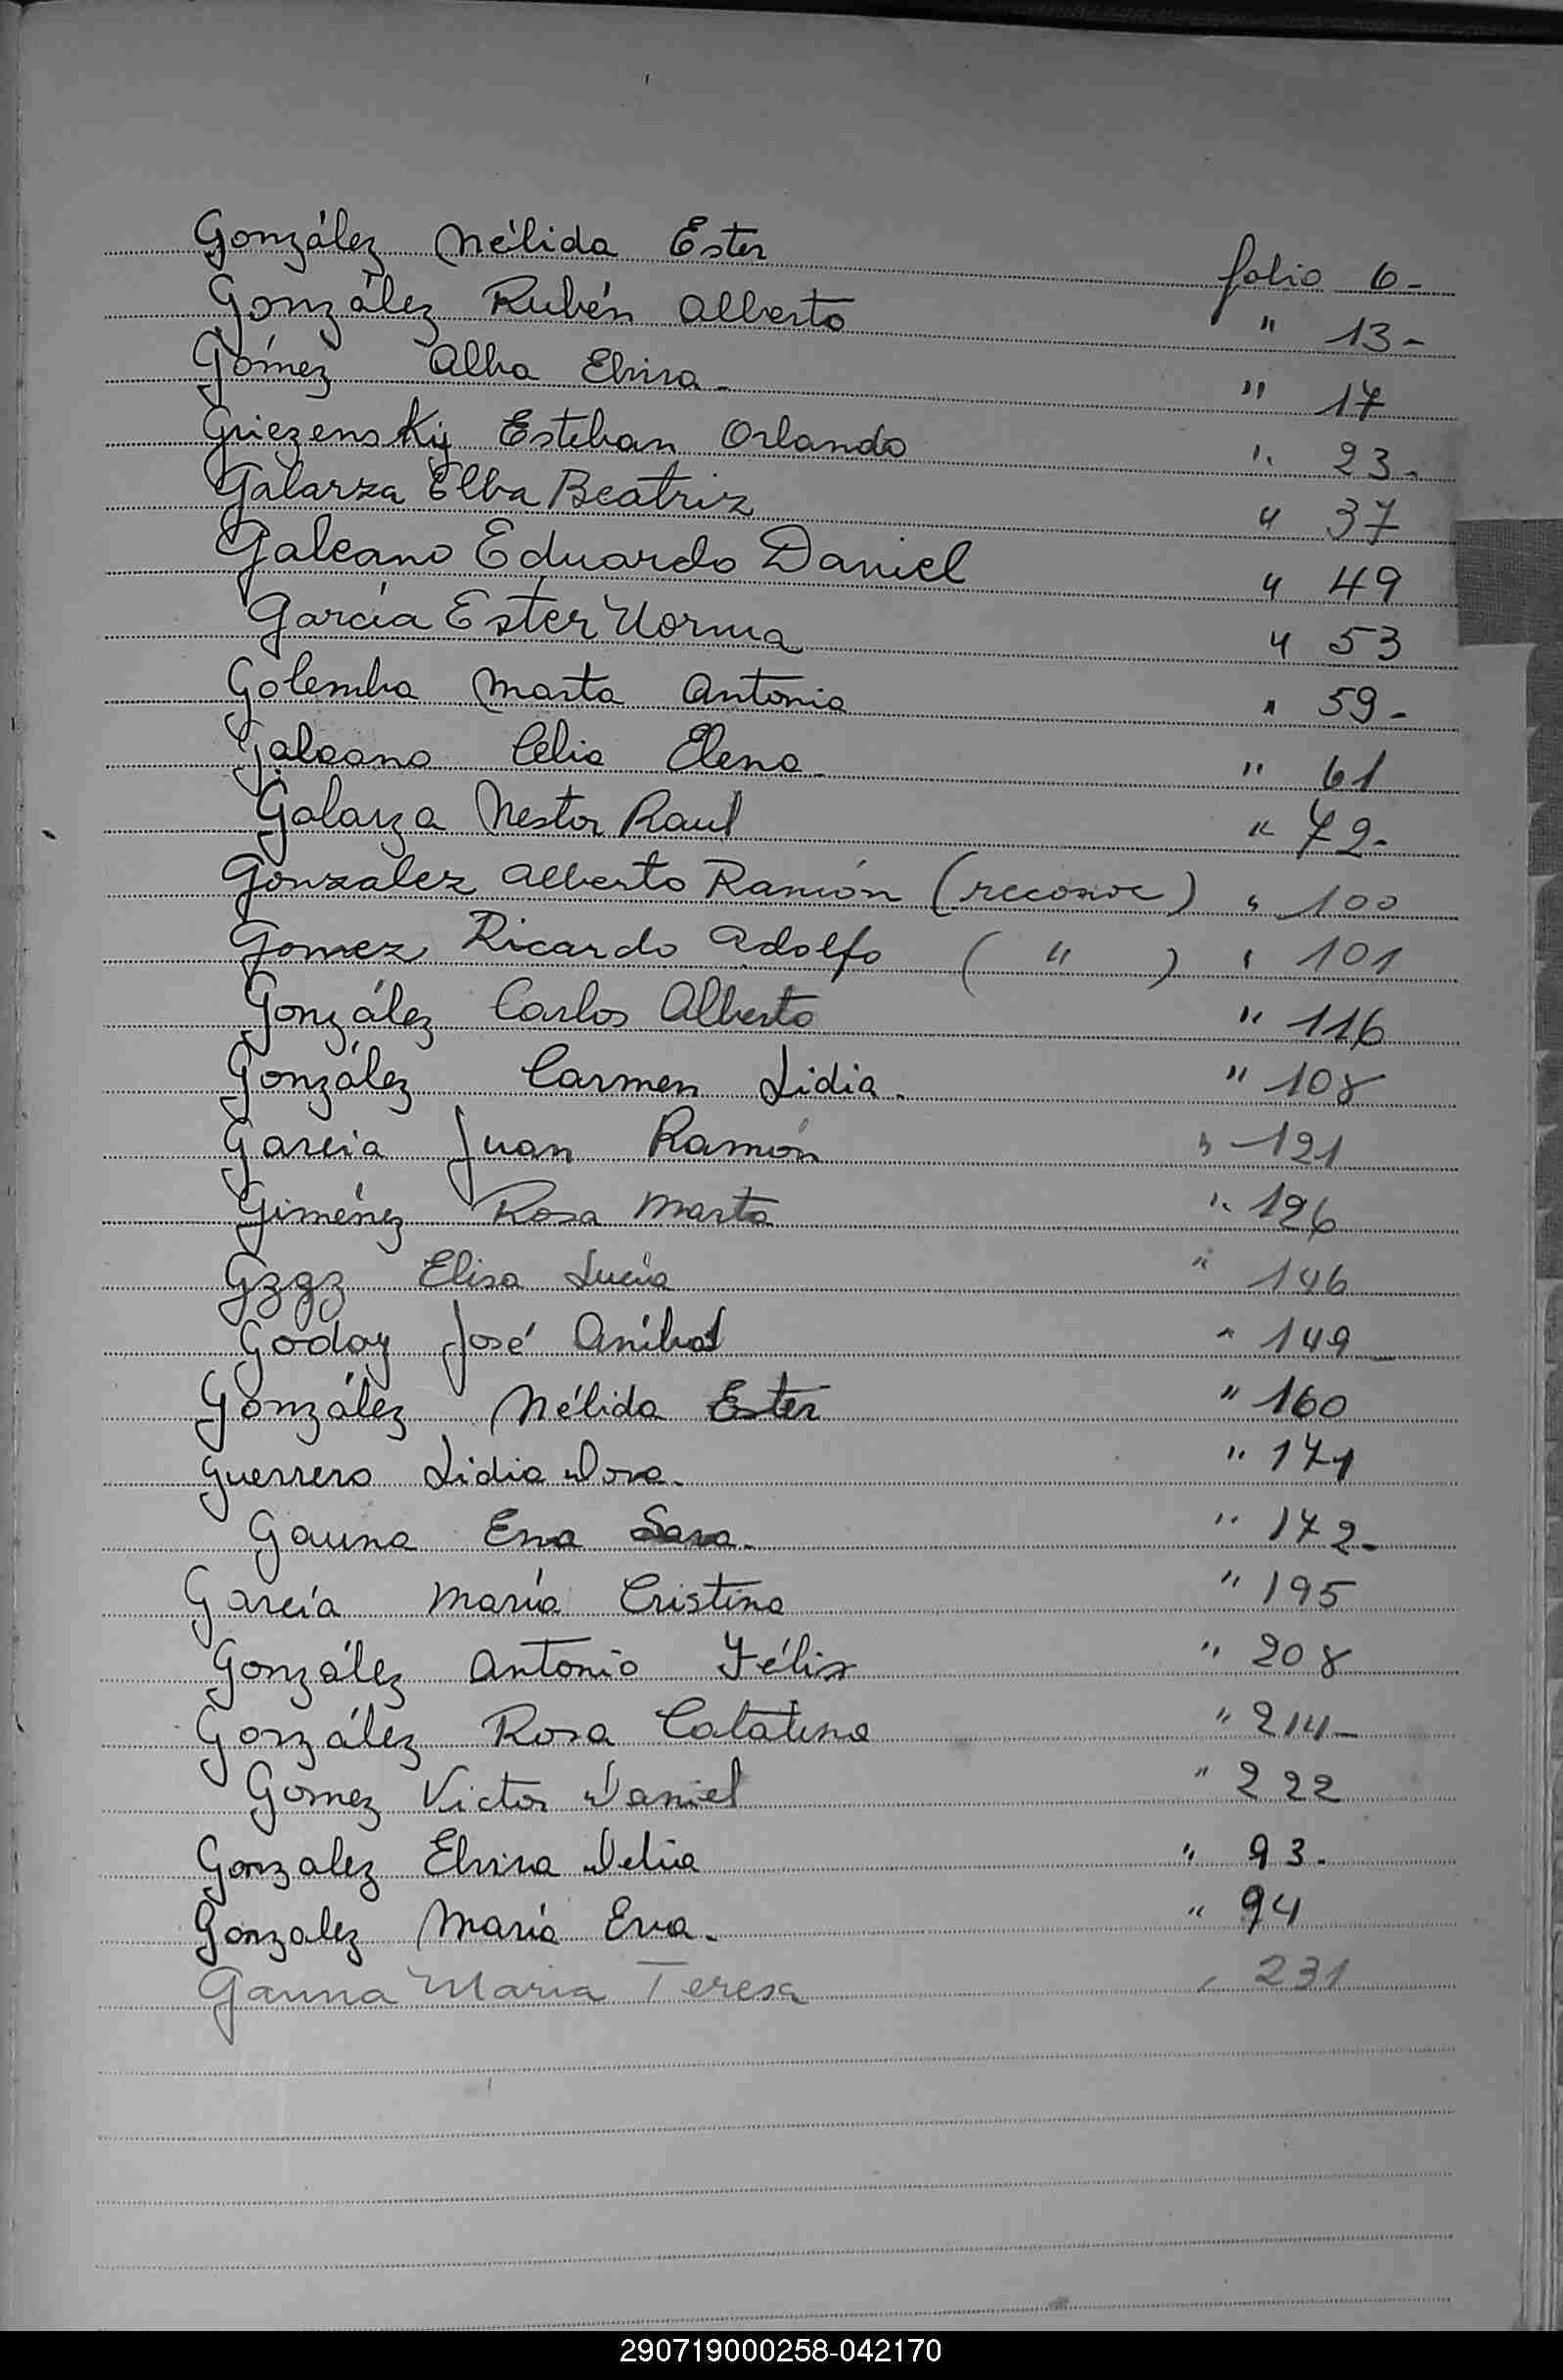 González Nélida Ester folio 6-
González Rubén Alberto " 13-
Gómez Alba Elvira- " 17
Griezenskij Esteban Orlando " 23-
Galarza Elba Beatriz " 37
Galeano Eduardo Daniel " 49
García Ester Norma " 53
Golemba Marta Antonia " 59-
Galeano Celia Elena- " 61
Galarza Nestor Raul " 72-
Gonzalez Alberto Ramón (reconoc) " 100
Gomez Ricardo Adolfo ( " ) " 101
González Carlos Alberto " 116
González Carmen Lidia. " 108
García Juan Ramón " 121
Giménez Rosa Marta " 126
Gzgz Elisa Lucía " 146
Godoy José Aníbal " 149
González Nélida Ester " 160
Guerrero Lidia Dora. " 171
Gauna Ena Sara. " 172-
García María Cristina " 195
González Antonio Félix " 208
González Rosa Catalina " 214-
Gomez Victor Daniel " 222
Gonzalez Elvira Delia " 93.
Gonzalez María Eva. " 94
Gauna Maria Teresa " 231
290719000258-042170